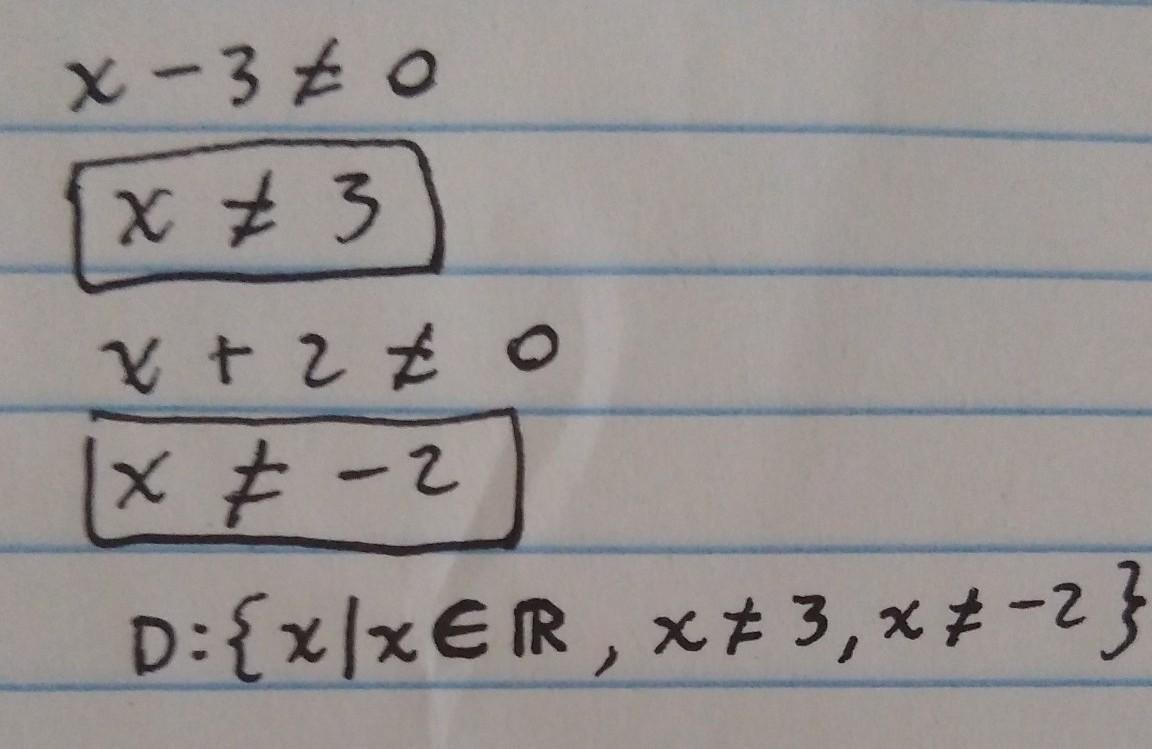 x - 3 ≠ 0
x ≠ 3
x + 2 ≠ 0
x ≠ -2
D:{x|x∈ℝ, x≠3, x≠-2}